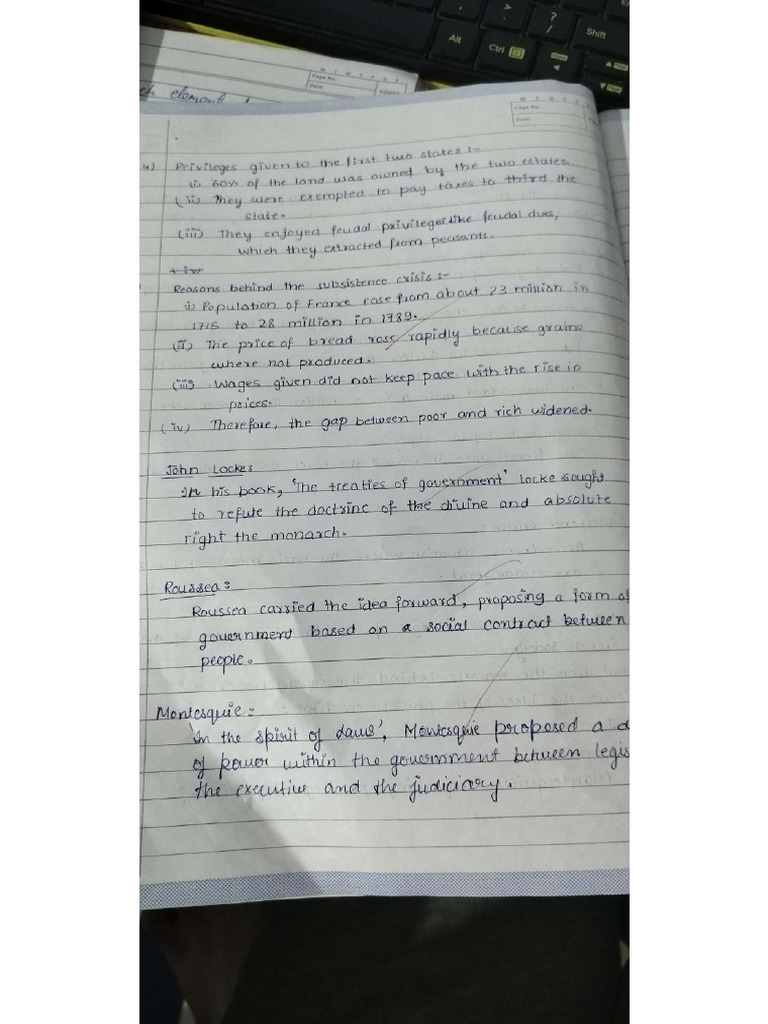 Alt
Ctrl
?
/
Shift
Page No.
Date
M T W T F S
Page No.
Date:
4) Privileges given to the first two states :-
i) 60% of the land was owned by the two estates.
(ii) They were exempted to pay taxes to third the
state.
(iii) They enjoyed feudal privileges like feudal dues,
which they extracted from peasants.
Reasons behind the subsistence crisis :-
i) Population of France rose from about 23 million in
1715 to 28 million in 1789.
(ii) The price of bread rose rapidly because grains
where not produced.
(iii) Wages given did not keep pace with the rise in
prices.
(iv) Therefore, the gap between poor and rich widened.
John Locke:
In his book, 'The treaties of government' locke sought
to refute the doctrine of the divine and absolute
right the monarch.
Roussea:
Roussea carried the idea forward, proposing a form of
government based on a social contract between
people.
Montesquie:-
In the spirit of daws', Montesquie proposed a d
of power within the government between legis
the executive and the judiciary.